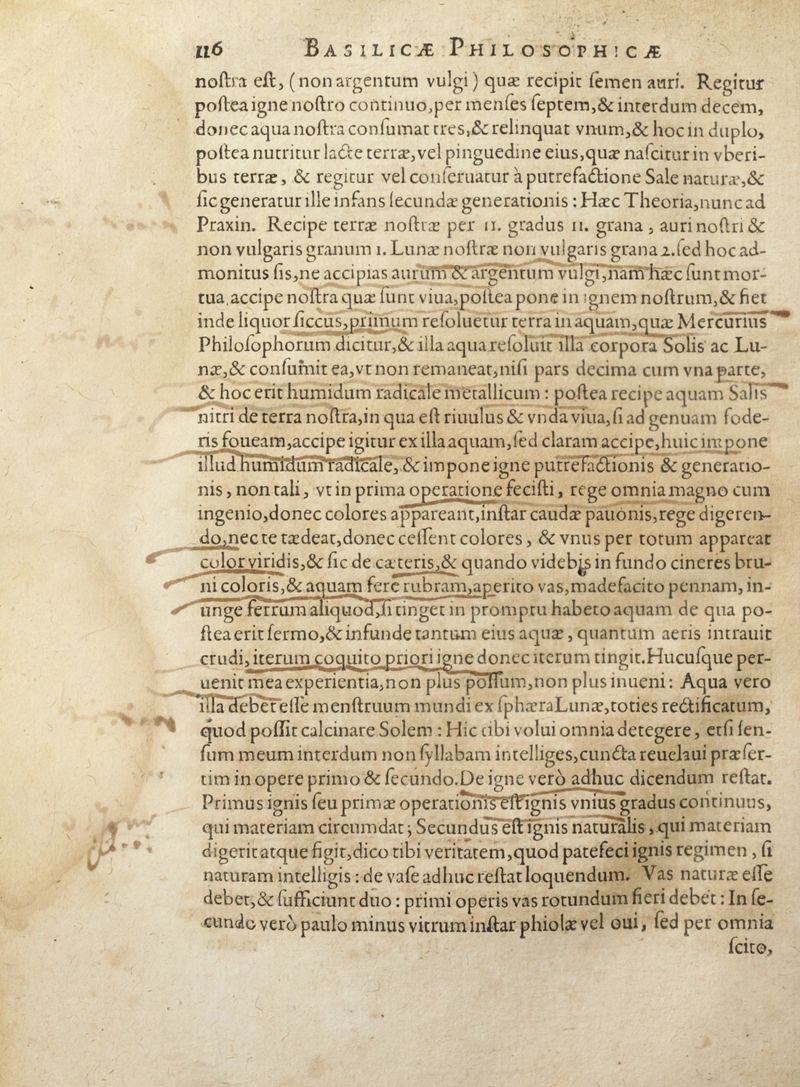 116 BASILICÆ PHILOSOPHICÆ
noſtra eſt, (non argentum vulgi) quæ recipit ſemen auri. Regitur
poſtea igne noſtro continuo, per menſes ſeptem, & interdum decem,
donec aqua noſtra conſumat tres, & relinquat vnum, & hoc in duplo,
poſtea nutritur lacte terræ, vel pinguedine eius, quæ naſcitur in vberi-
bus terræ, & regitur vel conſeruatur à putrefactione Sale naturæ, &
ſic generatur ille infans ſecundæ generationis : Hæc Theoria, nunc ad
Praxin. Recipe terræ noſtræ per 11. gradus 11. grana, auri noſtri &
non vulgaris granum 1. Lunæ noſtræ non vulgaris grana 2. ſed hoc ad-
monitus ſis, ne accipias aurum & argentum vulgi, nam hæc ſunt mor-
tua. accipe noſtra quæ ſunt viua, poſtea pone in ignem noſtrum, & fiet
inde liquor ſiccus, primum reſoluetur terra in aquam, quæ Mercurius
Philoſophorum dicitur, & illa aqua reſoluit illa corpora Solis ac Lu-
næ, & conſumit ea, vt non remaneat, niſi pars decima cum vna parte,
& hoc erit humidum radicale metallicum : poſtea recipe aquam Salis
nitri de terra noſtra, in qua eſt riuulus & vnda viua, ſi ad genuam fode-
ris foueam, accipe igitur ex illa aquam, ſed claram accipe, huic impone
illud humidum radicale, & impone igne putrefactionis & generatio-
nis, non tali, vt in prima operatione feciſti, rege omnia magno cum
ingenio, donec colores appareant, inſtar caudæ pauonis, rege digeren-
do, nec te tædeat, donec ceſſent colores, & vnus per totum appareat
color viridis, & ſic de cæteris, & quando videbis in fundo cineres bru-
ni coloris, & aquam ferè rubram, aperito vas, madefacito pennam, in-
unge ferrum aliquod, ſi tinget in promptu habeto aquam de qua po-
ſtea erit ſermo, & infunde tantum eius aquæ, quantum aeris intrauit
crudi, iterum coquito priori igne donec iterum tingit. Hucuſque per-
uenit mea experientia, non plus poſſum, non plus inueni : Aqua vero
illa debet eſſe menſtruum mundi ex ſphæra Lunæ, toties rectificatum,
quod poſſit calcinare Solem : Hic tibi volui omnia detegere, etſi ſen-
ſum meum interdum non ſyllabam intelliges, cuncta reuelaui præſer-
tim in opere primo & ſecundo. De igne verò adhuc dicendum reſtat.
Primus ignis ſeu primæ operationis eſt ignis vnius gradus continuus,
qui materiam circumdat ; Secundus eſt ignis naturalis, qui materiam
digerit atque figit, dico tibi veritatem, quod patefeci ignis regimen, ſi
naturam intelligis : de vaſe adhuc reſtat loquendum. Vas naturæ eſſe
debet, & ſufficiunt duo : primi operis vas rotundum fieri debet : In ſe-
cundo verò paulo minus vitrum inſtar phiolæ vel oui, ſed per omnia
ſcito,